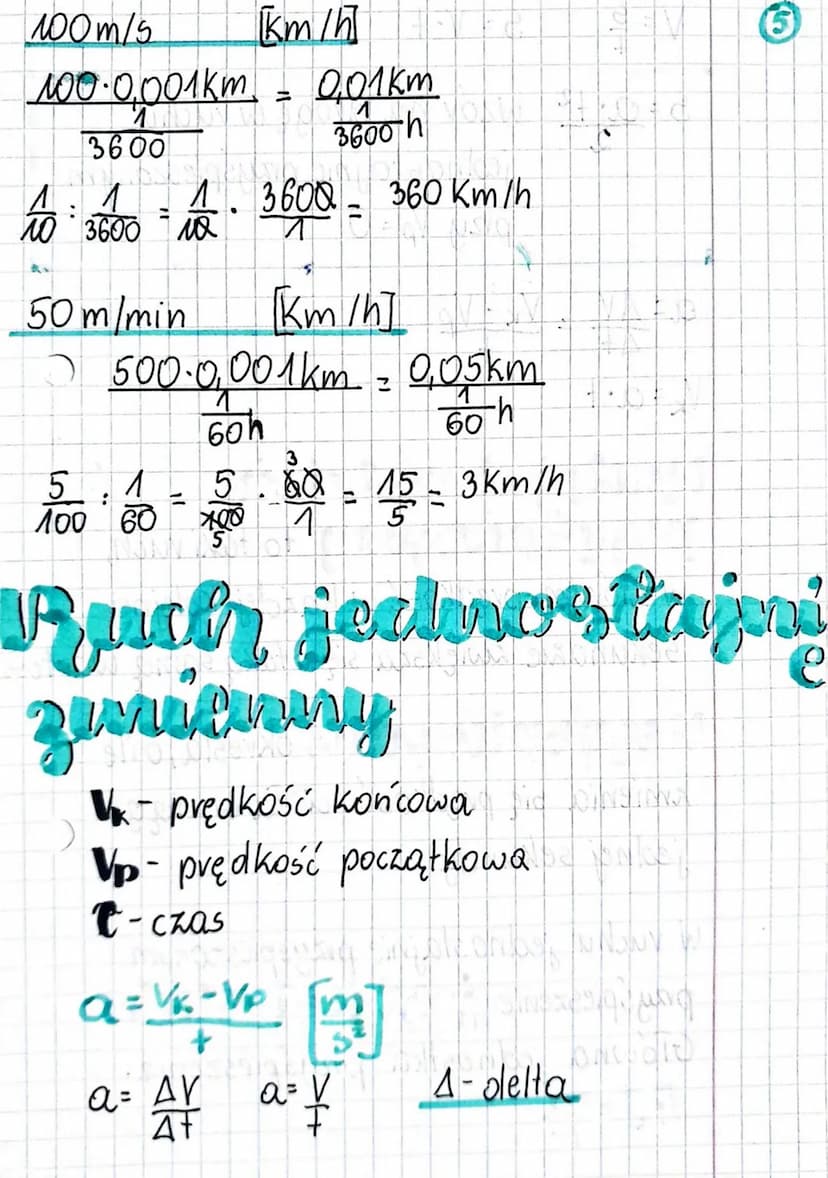 5
100m/s [km/h]
100·0,001km / 1/3600 = 0,01km / 1/3600 h
1/10 : 1/3600 = 1/10 · 3600/1 = 360 km/h
50 m/min [km/h]
500·0,001km / 1/60h = 0,05km / 1/60 h
5/100 : 1/60 = 5/100 5 · 3 60/1 = 15/5 = 3km/h
Ruch jednostajni
e
zmienny
Vk - prędkość końcowa
Vp - prędkość początkowa
t - czas
a = Vk - Vp / t [m/s²]
a = ΔV/Δt a = V/t Δ - delta